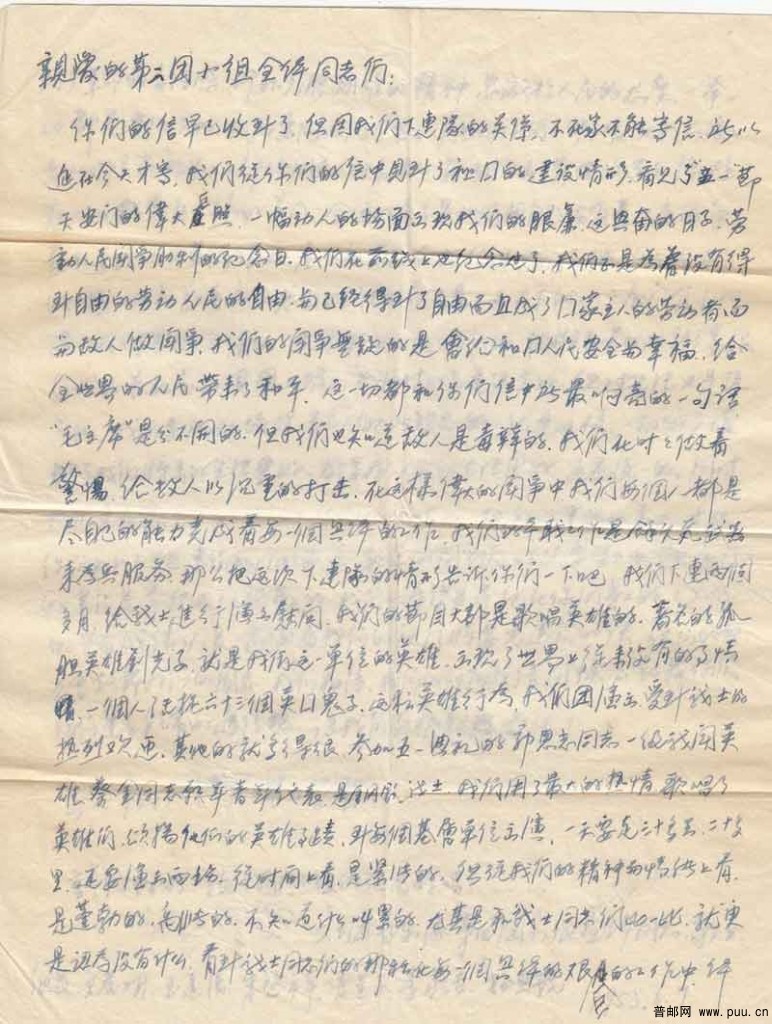 親愛的第二团十组全体同志们：
你們的信早已收到了，但因我们下連隊的关係，不在家不能寄信，所以
在今天才寄，我们從你們的信中見到了祖国的建設情形，看見了五一節
天安门的偉大，一幅动人的場面出现我们的眼廉，这兴奋的日子，劳
动人民鬥争胜利的纪念日，我们在前线上也纪念过了，我们正是为着没有得
到自由的劳动人民的自由，与已经得到了自由而且成了国家主人的劳动者，而
与敌人做鬥争，我们的鬥争無疑的是會给和国人民安全与幸福，给
全世界的人民带来了和平，这一切都和你们信中所最响亮的一句话
“毛主席”是分不開的，但我们也知道敌人是毒辣的，我们在时々做着
警惕，给敌人以沉重的打击，在这样偉大的鬥争中我们每個人都是
尽自己的能力完成着每一個具体的工作，我们的工作是
来为兵服务，那么把这次下連隊的情形告诉你们一下吧，我们下連两個
多月，给战士進行演出慰问，我们的節目大都是歌唱英雄的，著名的孤
胆英雄劉光子，就是我们这一单位的英雄，出现了世界上從来没有的事情
，一個人活捉六十三個英国鬼子，这种英雄行為，我们团演出，受到战士的
热烈欢迎，其他的就多得很，参加五一典礼的郭恩志同志一级战鬥英
雄，蔡金同志 我们用了最大的热情歌唱了
英雄们，颂揚他们的英雄事蹟，到每個基層单位出演，一天要走三十里，二十里
里，还要演出两场，從时间上看，是紧张的，但從我们的精神与情绪上看，
是蓬勃的，是的，不知道什么叫累的，尤其是和战士同志们比一比，就更
是认为没有什么，看到战士同志们的那种在每一個具体的艱苦的工作中，体
会
普邮网 www.puu.cn